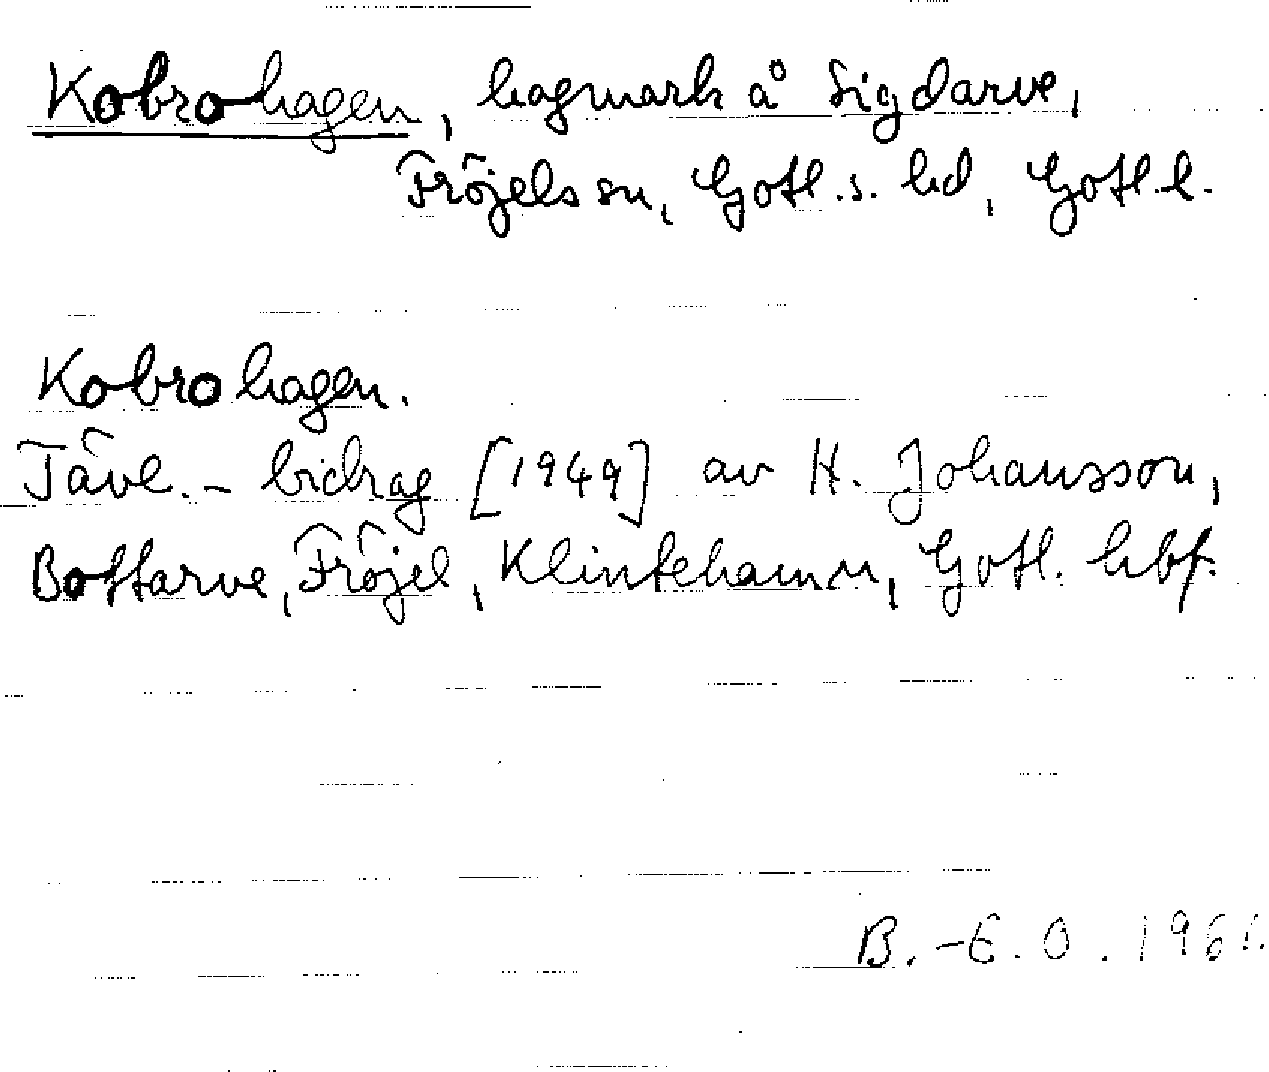 Kobrohagen, hagmark å Sigdarve,
Fröjels sn, Gotl. s. hd, Gotl. l.
Kobrohagen.
Tävl. - bidrag [1949] av H. Johansson,
Bottarve, Fröjel, Klintehamn, Gotl. hbf.
B.-E. O. 1961.